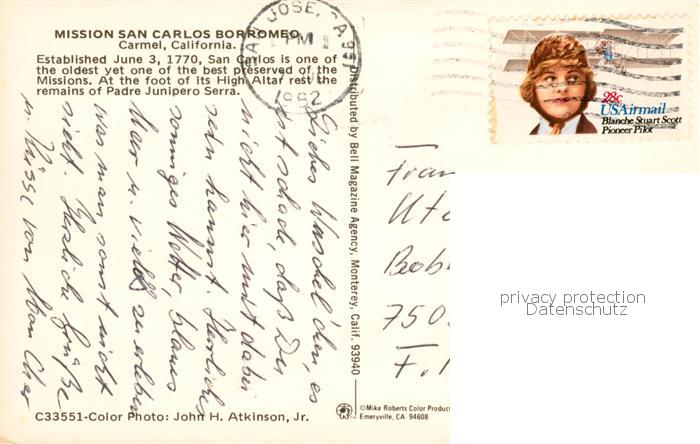 MISSION SAN CARLOS BORROMEO,
Carmel, California.
Established June 3, 1770, San Carlos is one of
the oldest yet one of the best preserved of the
Missions. At the foot of its High Altar rest the
remains of Padre Junipero Serra.
SAN JOSE, CA 951
PM
1982
28c
USAirmail
Blanche Stuart Scott
Pioneer Pilot
Liebes Wuschelchen, es
ist schade, daß Du
nicht hier mit dabei
sein kannst. Herrliches
sonniges Wetter, blaues
Meer u. vieles zu erleben
was man sonst nicht
sieht. Herzliche Grüße
u. Küsse von
Distributed by Bell Magazine Agency, Monterey, Calif. 93940
Fran
Ute
Bob
750
privacy protection
Datenschutz
©Mike Roberts Color Produc
Emeryville, CA 94608
C33551-Color Photo: John H. Atkinson, Jr.